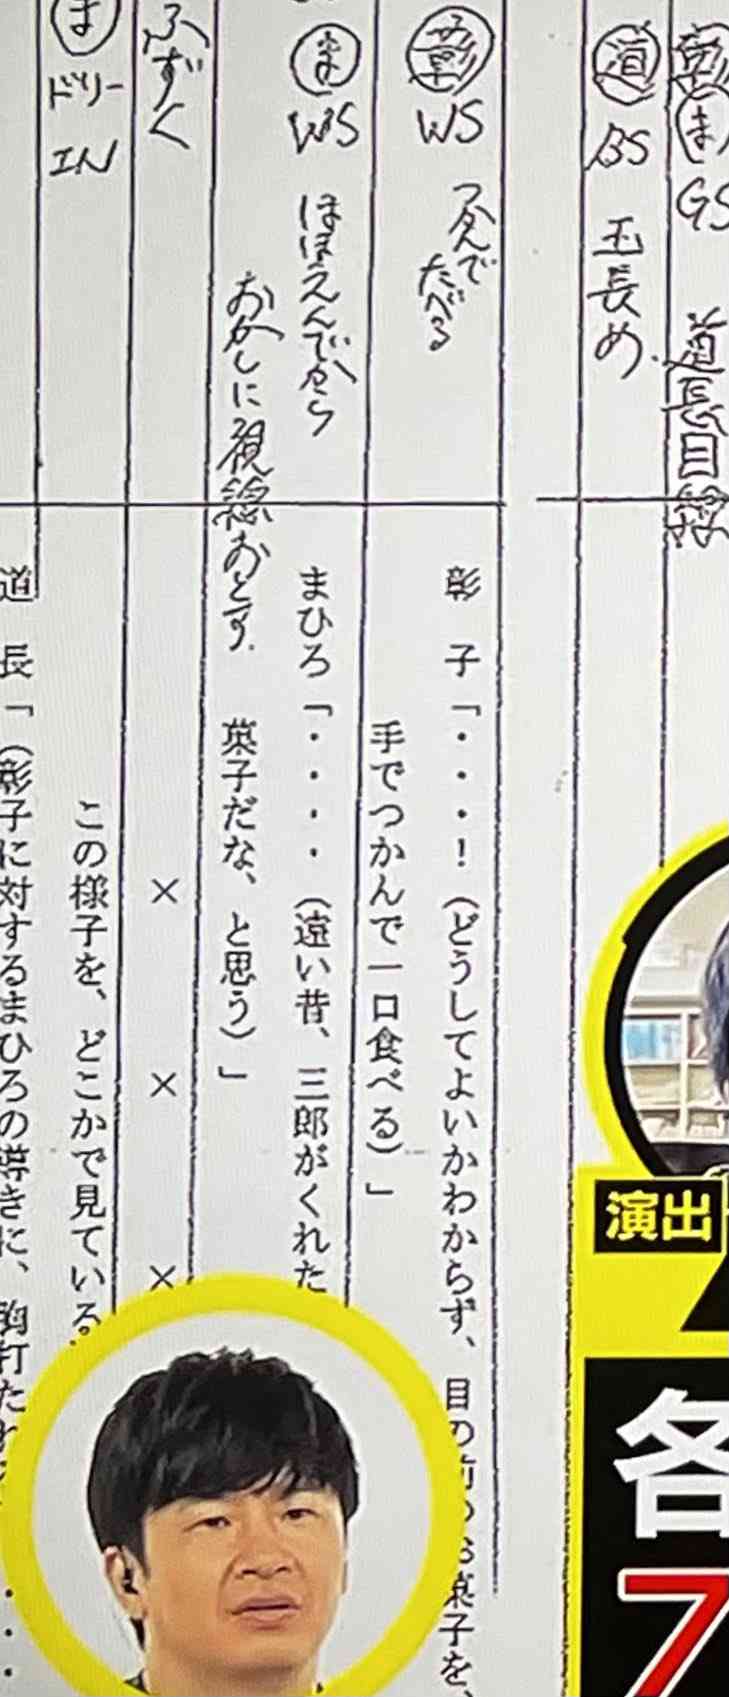 彰 ま GS 道長目線
道 BS 玉長め
彰 WS つかんで
たべる
ま WS ほほえんでから
おかしに視線おとす.
ふずく
ま ドリー IN
彰 子「・・・!(どうしてよいかわからず、目の前のお菓子を、
手でつかんで一口食べる)」
まひろ「・・・・(遠い昔、三郎がくれた
菓子だな、と思う)」
× × ×
この様子を、どこかで見ている
道 長「(彰子に対するまひろの導きに、胸打た
演出
各